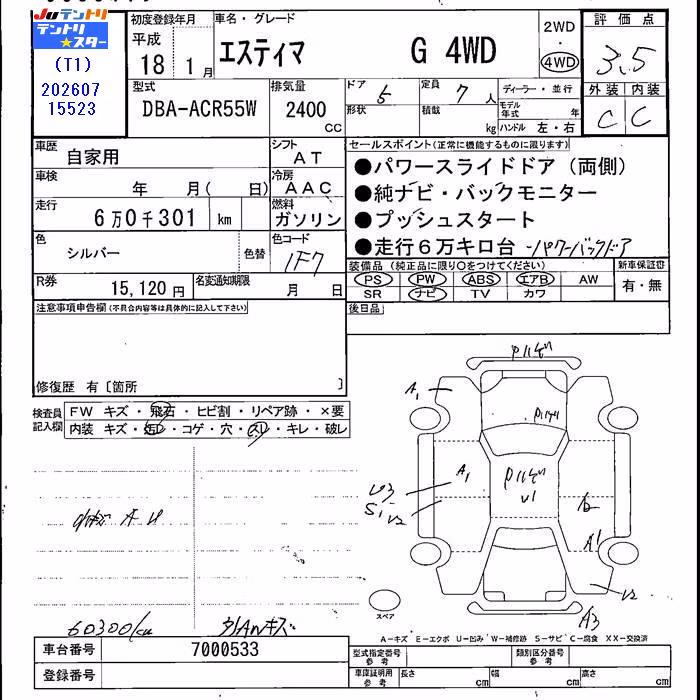 Juテントリ
テントリ★スター
(T1)
202607
15523
初度登録年月
平成
18 1月
車名・グレード
エスティマ G 4WD
2WD
・
4WD
評価点
3.5
外装 内装
C C
型式
DBA-ACR55W
排気量
2400
CC
ドア 5
定員 7人
ディーラー・並行
形状
積載 kg
モデル年式 年
ハンドル 左・右
車歴
自家用
シフト
AT
車検
年 月( 日)
冷房
AAC
走行
6万0千301 km
燃料
ガソリン
色
シルバー
色替
色コード
1F7
R券
15,120円
名変通知期限
月 日
セールスポイント(正常に機能するものに限ります)
●パワースライドドア(両側)
●純ナビ・バックモニター
●プッシュスタート
●走行6万キロ台 -パワーバックドア
装備品(純正品に限り○をつけてください)
PS PW ABS エアB AW
SR ナビ TV カワ
新車保証書
有・無
後日品
注意事項申告欄(不具合内容等は具体的に記入して下さい)
修復歴 有〔箇所 〕
検査員記入欄
FW キズ・飛石・ヒビ割・リペア跡・×要
内装 キズ・汚レ・コゲ・穴・スレ・キレ・破レ
A1
A1
U3
S1 U2
U1
A1
U2
A3
スペア
60300km
A-キズ E-エクボ U-凹み W-補修跡 S-サビ C-腐食 XX-交換済
車台番号
7000533
登録番号
型式指定番号
参考
類別区分番号
参考
車庫証明用
参考
長さ cm
幅 cm
高さ cm